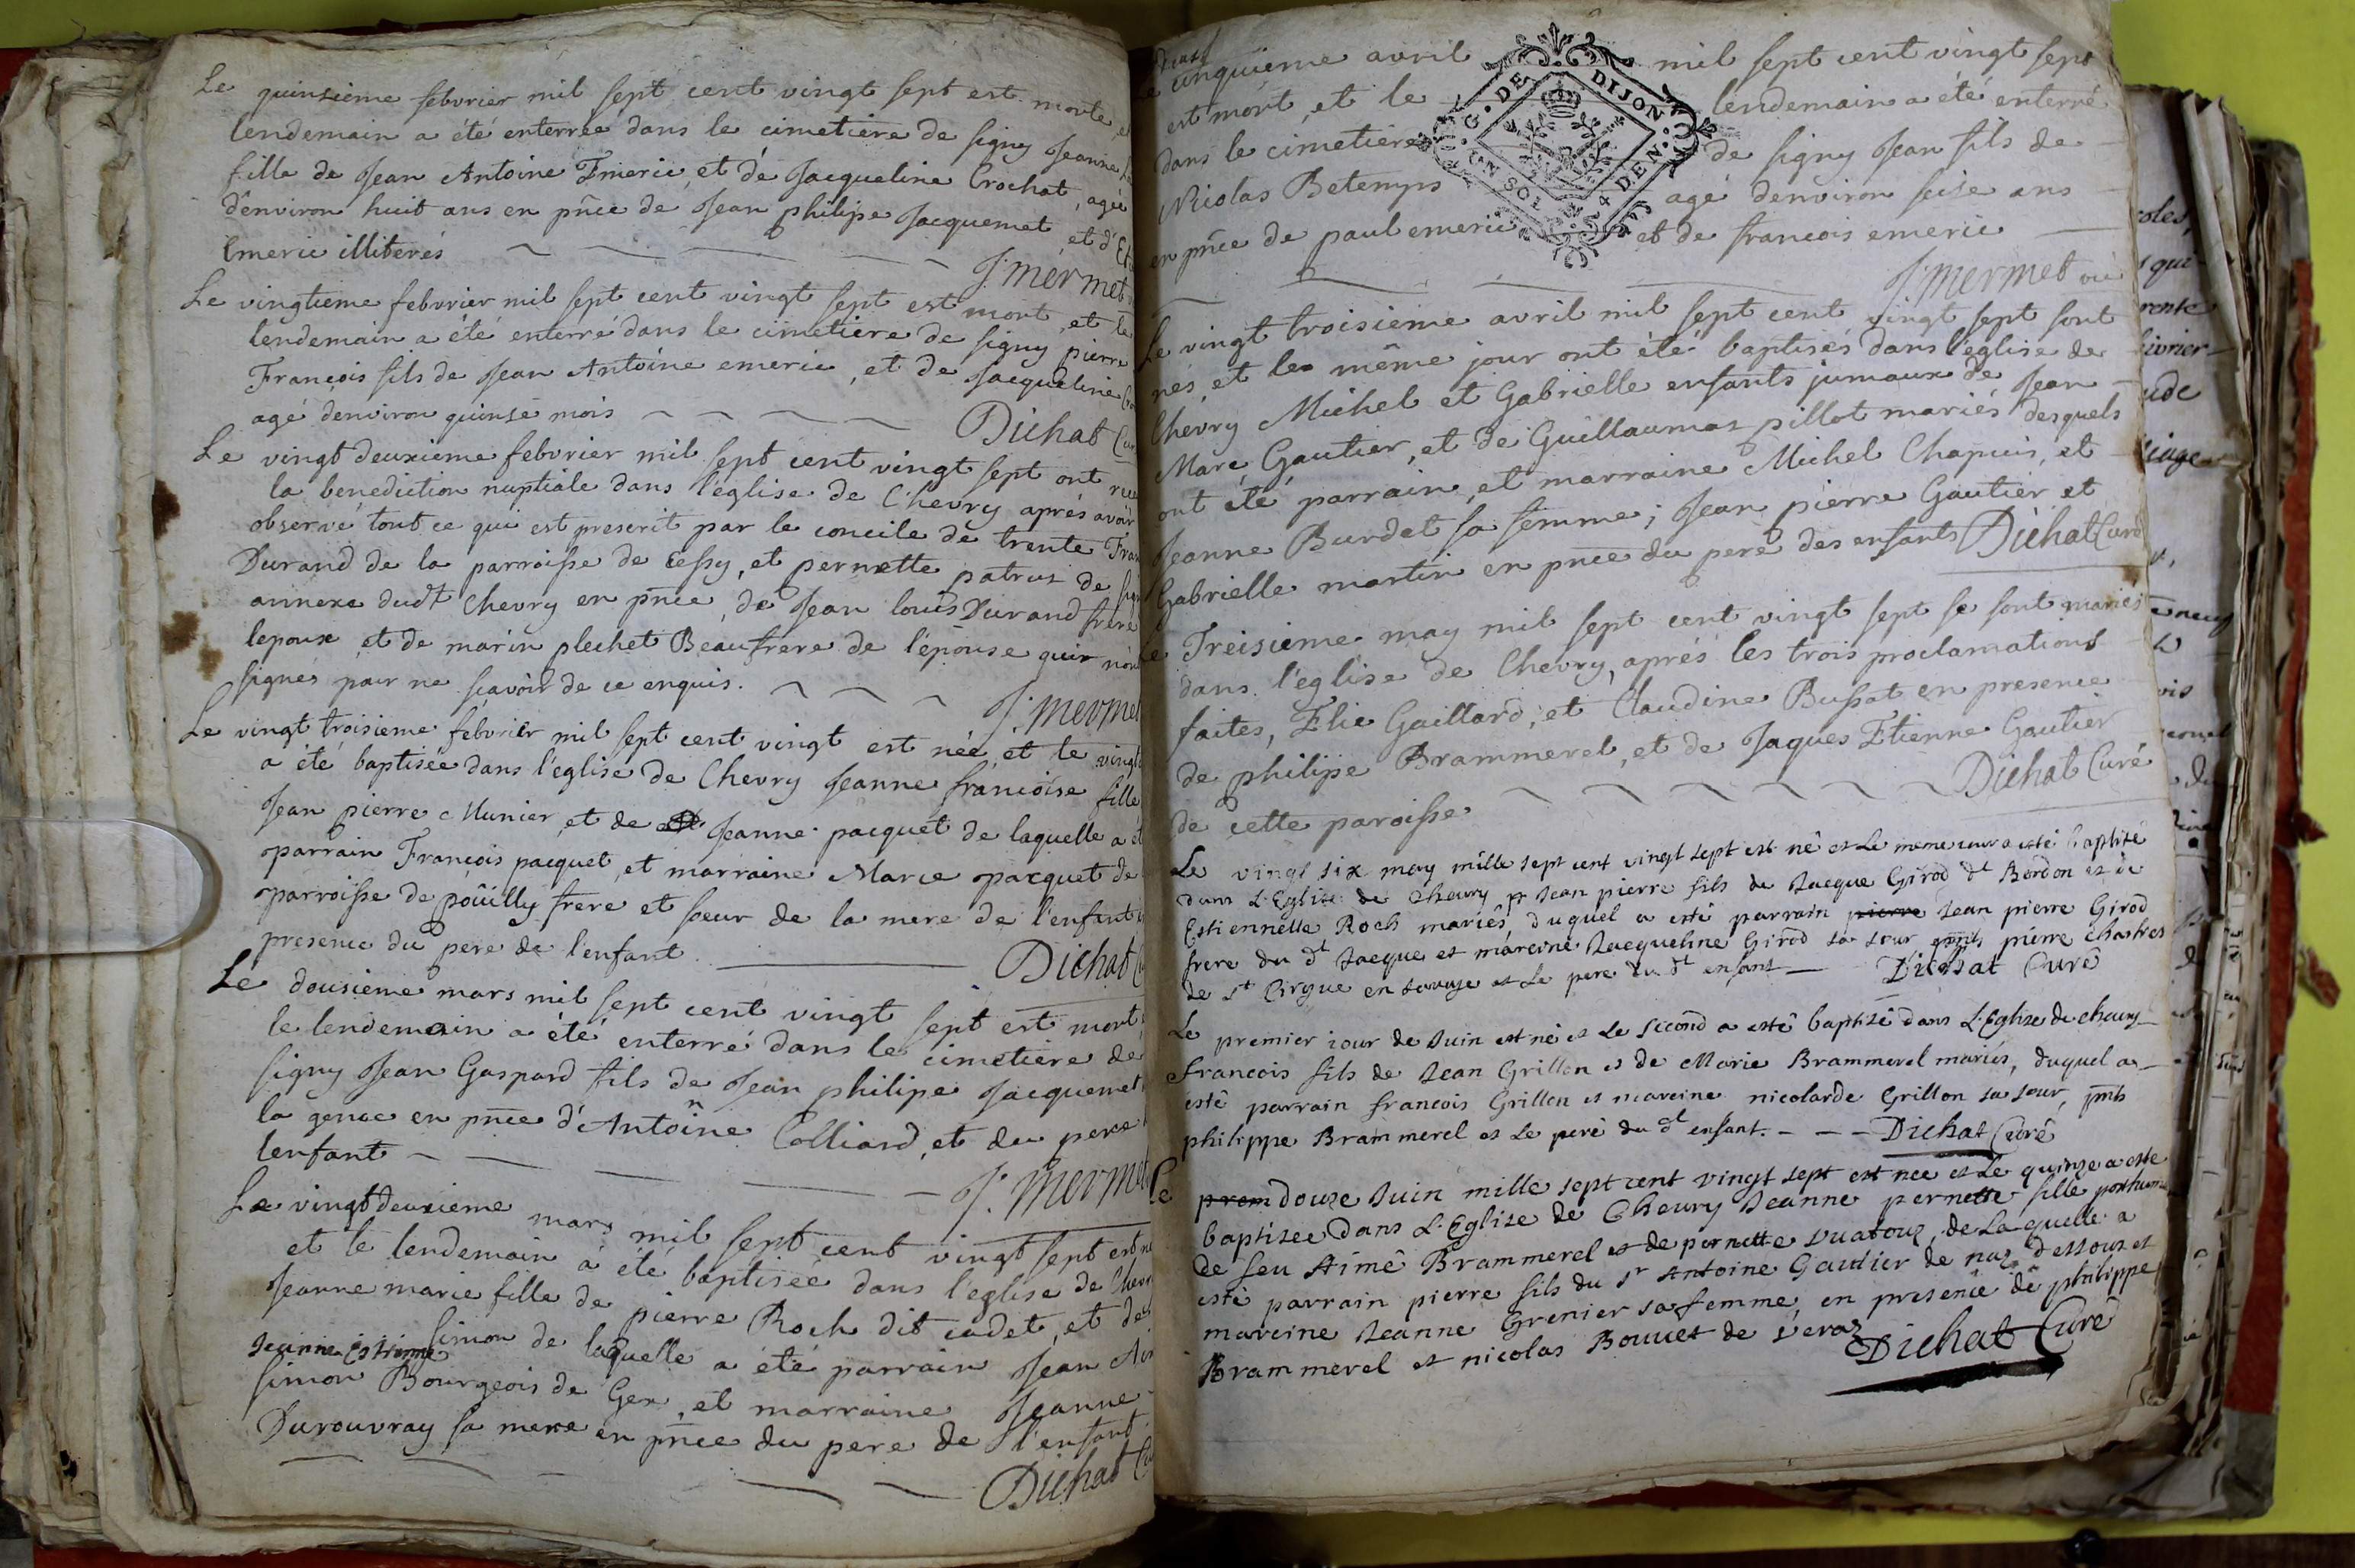 Le quinsieme febvrier mil sept cent vingt sept est morte, et
lendemain a été enterrée dans le cimetiere de signy Jeanne
fille de Jean Antoine Emeric, et de Jacqueline Crochat, agée
d'environ huit ans en pnce de Jean philipe Jacquemet et d'
Emeric illiterés
J: mermet
Le vingtieme febvrier mil sept cent vingt sept est mort, et le
lendemain a été enterré dans le cimetiere de signy pierre
François fils de Jean Antoine emeric, et de Jacqueline
agé denviron quinse mois
Dichat Cur
Le vingt deuxieme febvrier mil sept cent vingt sept ont
la benediction nuptiale dans l'église de Chevry aprés avoir
observé tout ce qui est prescrit par le concile de trente
Durand de la parroisse de Cessy, et pernette patrus de
annexe dudt Chevry en pnce de Jean louis Durand frere
lepoux et de marin plechet Beaufrere de l'épouse qui n'ont
signés pour ne sçavoir de ce enquis.
J: mermet
Le vingt troisieme febvrier mil sept cent vingt est née, et le vingt
a été baptisée dans l'église de Chevry Jeanne francoise fille
Jean pierre Munier et de Jeanne pacquet de laquelle a
parrain François pacquet, et marraine Marie pacquet de
parroisse de pouilly frere et soeur de la mere de l'enfant
presence du pere de l'enfant
Dichat
Le dousieme mars mil sept cent vingt sept est mort
le lendemain a été enterré dans le cimetiere de
signy Jean Gaspard fils de Jean philipe Jacquemet
la genoe en pnce d'Antoine Colliard, et du pere
lenfant
J. mermet
Le vingtdeuxieme mars mil sept cent vingt sept est
et le lendemain a été baptisée dans l'église de Chevry
Jeanne marie fille de pierre Roch dit cadet, et de
Jeanne Estienne simon de laquelle a été parrain Jean
simon Bourgeois de Gex, et marraine Jeanne
Durouvray sa mere en pnce du pere de l'enfant
Dichat
Le cinquieme avril mil sept cent vingt sept
est mort, et le lendemain a été enterré
dans le cimetiere de signy Jean fils de
Nicolas Betemps agé denviron seise ans
en pnce de paul emeric et de francois emeric
G. DE DIJON
J: mermet vic
Le vingt troisieme avril mil sept cent vingt sept sont
nés, et le même jour ont été baptisés dans l'église de
Chevry Michel et Gabrielle enfants jumaux de Jean
Marc Gautier, et de Guillaumaz pillot mariés desquels
ont été parrain, et marraine Michel Chapuis, et
Jeanne Burdet sa femme; Jean pierre Gautier et
Gabrielle martin en pnce du pere des enfants Dichat Curé
Le Treisieme may mil sept cent vingt sept se sont mariés
dans l'église de Chevry, aprés les trois proclamations
faites, Elie Gaillard, et Claudine Bussat en presence
de philipe Brammerel, et de Jaques Etienne Gautier
de cette paroisse
Dichat Curé
Le vingt six may mille sept cent vingt sept est né et Le meme jour a esté baptisé
dans L'Eglise de Chevry Jean pierre fils de Jacque Girod dt Bordon et de
Estiennette Roch mariés, duquel a esté parrain pierre Jean pierre Girod
frere du dt Jacque et mareine Jacqueline Girod sa sour pnts pierre chastres
de st Cirgue en et Le pere du dt enfant — Dichat Curé
Le premier iour de Juin est né et Le second a esté baptisé dans L'Eglise de chevry
francois fils de Jean Grillon et de Marie Brammerel mariés, duquel a
esté parrain francois Grillon et mareine nicolarde Grillon sa sour, pnts
philippe Brammerel et Le pere du dt enfant. - - - Dichat Curé
Le prem douze Juin mille sept cent vingt sept est nee et Le quinze a este
baptizee dans L'Eglise de Chevry Jeanne pernette fille posthume
de feu Aimé Brammerel et de pernette Vuatoux, de Laquelle a
esté parrain pierre fils du sr Antoine Gautier de naz dessous et
mareine Jeanne Grenier sa femme, en presence de philippe
Brammerel et nicolas Bouvet de Veraz
Dichat Curé